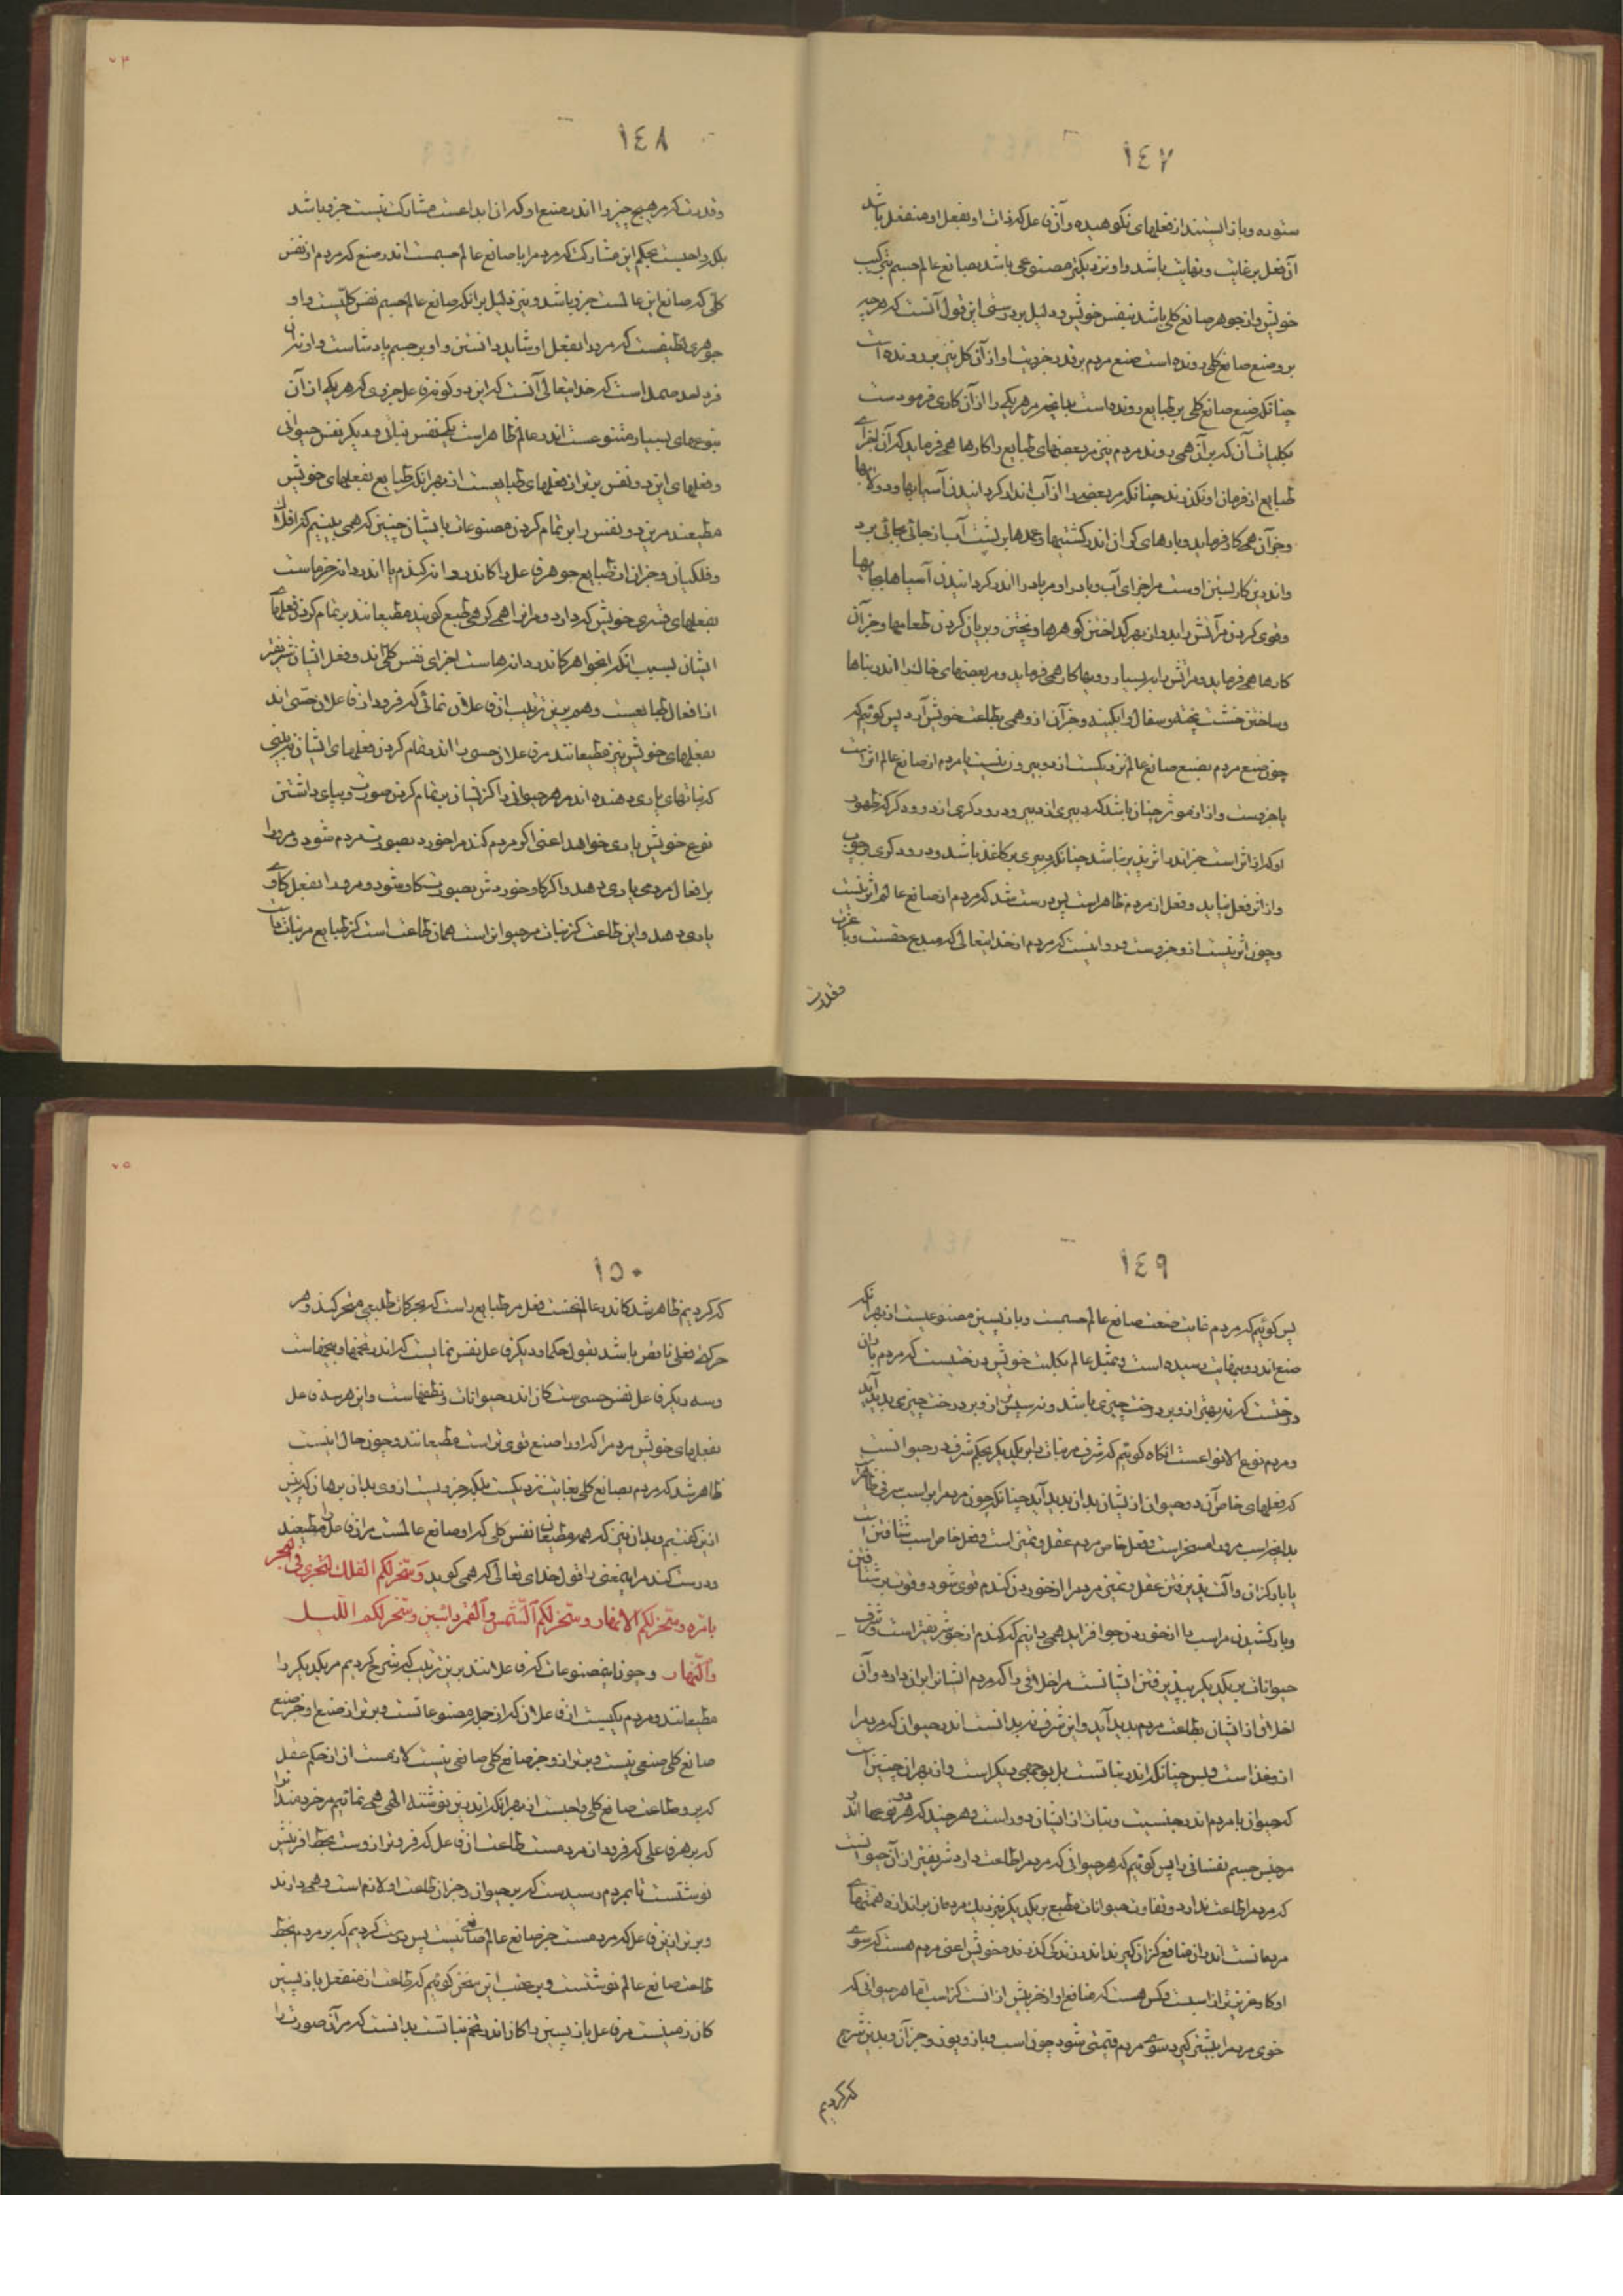 ١٤٧
ستوده و باز ایستند از فعلهای نکوهیده و آن فاعل که ذات او بفعل او منفعل باشد
آن فعل بر غایت و نهایت باشد و او نزدیکتر مصنوعی باشد بصانع عالم جسم بترکیب
خویش و از جوهر صانع کلی باشد بنفس خویش و دلیل بر درستی این قول آنست که هرچه
برو صنع صانع کلی رونده است صنع مردم بر قدر جزویت او از آن کل نیز برو رونده است
چنانکه صنع صانع کلی بر طبایع رونده است بدانچه مر هر یکی را از آن کاری فرمودست
بکلیات آن که بر آن همی روند مردم نیز مر بعضهای طبایع را کارها همی فرماید که آن اجزای
طبایع از فرمان او نگذرند چنانکه مر بعضی را از آب اندر گردانیدن آسیابها و دولابها
و جز آن همی کار فرماید و بارهای گران اندر کشتیها و عمدها بر پشت آب از جائی بجائی برد
و اندرین کار بستن اوست مر اجزای آب و باد را و مر باد را اندر گردانیدن آسیاها بجایها
و قوی کردن مر آتش را بدو از بهر گداختن گوهرها و پختن و بریان کردن طعامها و جز آن
کارها همی فرماید و مر آتش را بر بسیار رویها کار همی فرماید و مر بعضهای خاک را اندر بناها
و ساختن خشت پخته و سفال و آبگینه و جز آن ازو همی بطاعت خویش آرد پس گوئیم که
چون صنع مردم بصنع صانع عالم نزدیکست ازو بیرون نیست یا مردم از صانع عالم اثرست
یا جزوست و اثر از مؤثر چنان باشد که دبیری از دبیر و درودگری از درودگر که ظهور
او که اثر است جز اندر اثر پذیر نباشد چنانکه دبیری بر کاغذ باشد و درودگری بر چوب
و از اثر فعل نیاید و فعل از مردم ظاهر است پس درست شد که مردم از صانع عالم اثر نیست
و چون اثر نیست ازو جزوست و روا نیست که مردم از خدایتعالی که مبدع حقست و با عزت
و قدرت
١٤٨
و قدرت که مر هیچ چیز را اندر صنع او که آن ابداعست مشارکت نیست جزو باشد
بلکه واجبست بحکم این مشارکت که مردم را با صانع عالم جسمست اندر صنع که مردم از نفس
کلی که صانع این عالمست جزو باشد و نیز دلیل بر آنکه صانع عالم جسم نفس کلیست و او
جوهری لطیفست که مر او را بفعل او شاید دانستن و او بر جسم پادشاست و او نه آن
فرد احد صمد است که خدایتعالی آنست که این دو گونه فاعل جزوی که هر یکی از آن
بنوعهای بسیار متنوعست اندر عالم ظاهر است یکی نفس نباتی و دیگر نفس حیوانی
و فعلهای این دو نفس برتر از فعلهای طبایعست از بهر آنکه طبایع بفعلهای خویش
مطیعند مرین دو نفس را بر تمام کردن مصنوعات با ایشان چنین که همی بینیم که افلاک
و فلکیان و جز آن از طبایع جوهر فاعل را کاندر دانه گندم یا اندر دانه خرماست
بفعلهای قسری خویش که دارد و مر آنرا همی گروهی طبع گویند مطیعانند بر تمام کردن فعلهای
ایشان بسبب آنکه این جواهر کاندر دانه‌هاست اجزای نفس کلی‌اند و فعل ایشان شریفتر
از افعال طبایعست و هم برین ترتیب از فاعلان نمائی که فرود از فاعلان حسی‌اند
بفعلهای خویش نیز مطیعانند مر فاعلان حسی را اندر تمام کردن فعلهای ایشان بدینچه
که نباتهای یاری دهنده‌اند مر هر حیوانی را کز ایشان بر تمام کردن صورت و بپای داشتن
نوع خویش یاری خواهد اعنی اگر مردم گندم را خورد بصورت مردم شود و مر او را
بر افعال مردمی یاری دهد و اگر گاو خوردش بصورت گاو شود و مر او را بفعل گاوی
یاری دهد و این طاعت کز نبات مر حیوان است همان طاعت است کز طبایع مر نبات راست
١٤٩
پس گوئیم که مردم غایت صنعت صانع عالم جسمست و باز پسین مصنوعیست از بهر آنکه
صنع اندرو بنهایت رسیده است و بمثل عالم بکلیت خویش درختیست که مردم بار آن
درختست که نه بهتر از و بر درخت چیزی باشد و نه سپس از و بر درخت چیزی پدید آید
و مردم نوع الانواعست آنگاه گوئیم که شرف مر نبات را بر یکدیگر بحکم شرف در حیوانست
که فعلهای خاص آن دو حیوان از ایشان بدان پدید آید چنانکه چون مردم را بر اسب شرفی ظاهر
بدانچه اسب مر او را مسخر است و فعل خاص مردم عقل و تمیز است و فعل خاص اسب شتافتن است
با بار گران و آلت پذیرفتن عقل و تمیز مردم را از خوردن گندم قوی شود و قوت بر شتافتن
و بار کشیدن مر اسب را از خوردن جو افزاید همی دانیم که گندم از جو شریفتر است و شرف
حیوانات بر یکدیگر بپذیرفتن ایشانست مر اخلاقی را که مردم ایشان را بر آن دارد و آن
اخلاق از ایشان بطاعت مردم پدید آید و این شرف نه بدانست اندر حیوان که مردم را
ازو غذا است و بس چنانکه اندر نباتست بل بوجهی دیگر است و از بهر آن چنین است
که حیوان با مردم اندر جنسیت و نبات از ایشان دور است و هر چند که هر دو نوعها اند
مر جنس جسم نفسانی را پس گوئیم که هر حیوانی که مردم را طاعت دارد شریفتر از آن حیوانست
که مردم را طاعت ندارد و تفاوت حیوانات مطیع بر یکدیگر نیز نزدیک مردمان بر اندازه قیمتهای
مردمانست اندر آن منافع کز آن گیرند اندر زندگی گذرنده خویش اعنی مردم هست که سوی
او گاو عزیزتر از اسبست و کس هست که منافع او از خر بیش از آنست کز اسب اما هر حیوانی که
خوی مردم را بیشتر گیرد سوی مردم قیمتی شود چون اسب و باز و یوز و جز آن و بدین شرح
که کردیم
١٥٠
که کردیم ظاهر شد کاندر عالم نخست فعل مر طبایع راست که بحرکات طبیعی متحرکند و هر
حرکتی فعلی ناقص باشد بقول حکما و دیگر فاعل نفس نمائیست که اندر تخمها و بیخهاست
و سه دیگر فاعل نفس حسی ست کان اندر حیوانات و نطفهاست و این هر سه فاعل
بفعلهای خویش مردم را که او را صنع قوی تر است مطیعانند و چون حال اینست
ظاهر شد که مردم بصانع کلی بغایت نزدیکست بلکه جزویست از وی بدان برهان که پیش
ازین گفتیم و بدان نیز که همه مطیعان نفس کلی که او صانع عالمست مر آن فاعل را مطیعند
و درست کند مر این معنی را قول خدای تعالی که همی گوید وَسَخَّرَ لَكُمُ الفُلكَ لِتَجرِيَ فِي البَحرِ
بِاَمرِه وسَخَّرَ لَكُمُ الاَنهارَ وسَخَّرَ لَكُمُ الشَّمسَ وَالقَمَرَ دائبين وسَخَّرَ لَكُمُ اللَّيلَ
وَالنَّهارَ و چون این مصنوعات که فاعلانند برین ترتیب که شرح کردیم مر یکدیگر را
مطیعانند و مردم یکیست از فاعلان که از جمله مصنوعاتست و برتر از صنع او جز صنع
صانع کلی صنعی نیست و برتر ازو جز صانع کلی صانعی نیست لازمست از حکم عقل
که برو طاعت صانع کلی واجبست از بهر آنکه اندرین نوشته الهی همی نمائیم مر خردمند را
که بر هر فاعلی که فرود از مردمست طاعت آن فاعل که فروتر ازوست بخط آفرینش
نوشتست تا بمردم رسیدست که بر حیوان و جز آن طاعت او لازم است و همی دارند
و برتر ازین فاعل که مردمست جز صانع عالم صانعی نیست پس درست کردیم که بر مردم بخط
طاعت صانع عالم نوشتست و بر عقب این سخن گوئیم که طاعت از منفعل باز پسین
کان زمینست مر فاعل باز پسین را کان اندر تخم نباتست بدانست که مر آن صورت را